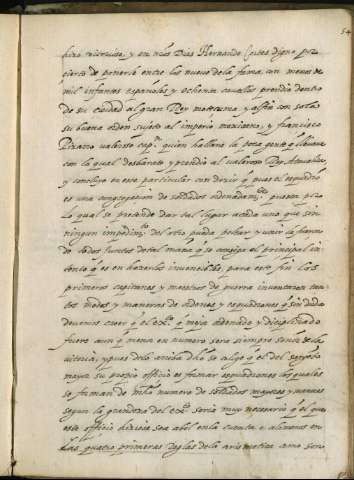 54
hizo victorioso, y en nros Dias Hernando Cortes digno por
cierto de ponerse entre los nueve de la fama, con menos de
mil infantes españoles y ochenta cavallos prendio dentro
de su ciudad al gran Rey motecuma, y assi con solas
su buena orden sujeto al imperio mexicano, y francisco
Pizarro valeroso cap. quien hallara la poca gente q̃ llevava
con la qual desbarato y prendio al valeroso Rey Atavaliva,
y concluyo en este particular con dezir q̃ pues el esquadron
es una congregacion de soldados ordenadamte. puestos por
la qual se pretende dar tal lugar a cada uno que sin
ningun impedimto. del otro pueda pelear y unir la fuerza
de todos juntos de tal manera q̃ se consiga el principal in
tento q̃ es en hazerlos invencibles, para este fin los
primeros capitanes y maestros de guerra inventaron tan
tos modos y maneras de ordenes y esquadrones q̃ sin duda
devemos creer q̃ el exto. q̃ mejor ordenado y diciplinado
fuere aunq̃ menor en numero sera siempre señor de la
victoria, y pues de lo arriba dho se colige q̃ el del sargento
mayor su propio officio es formar esquadrones los quales
se forman de mucho numero de soldados mayores y menores
segun la grandeza del exto. sera muy necesario q̃ el que
este officio hiziere sea abil en la cuenta o alomenos en
las quatro primeras Reglas de la arismetica como son